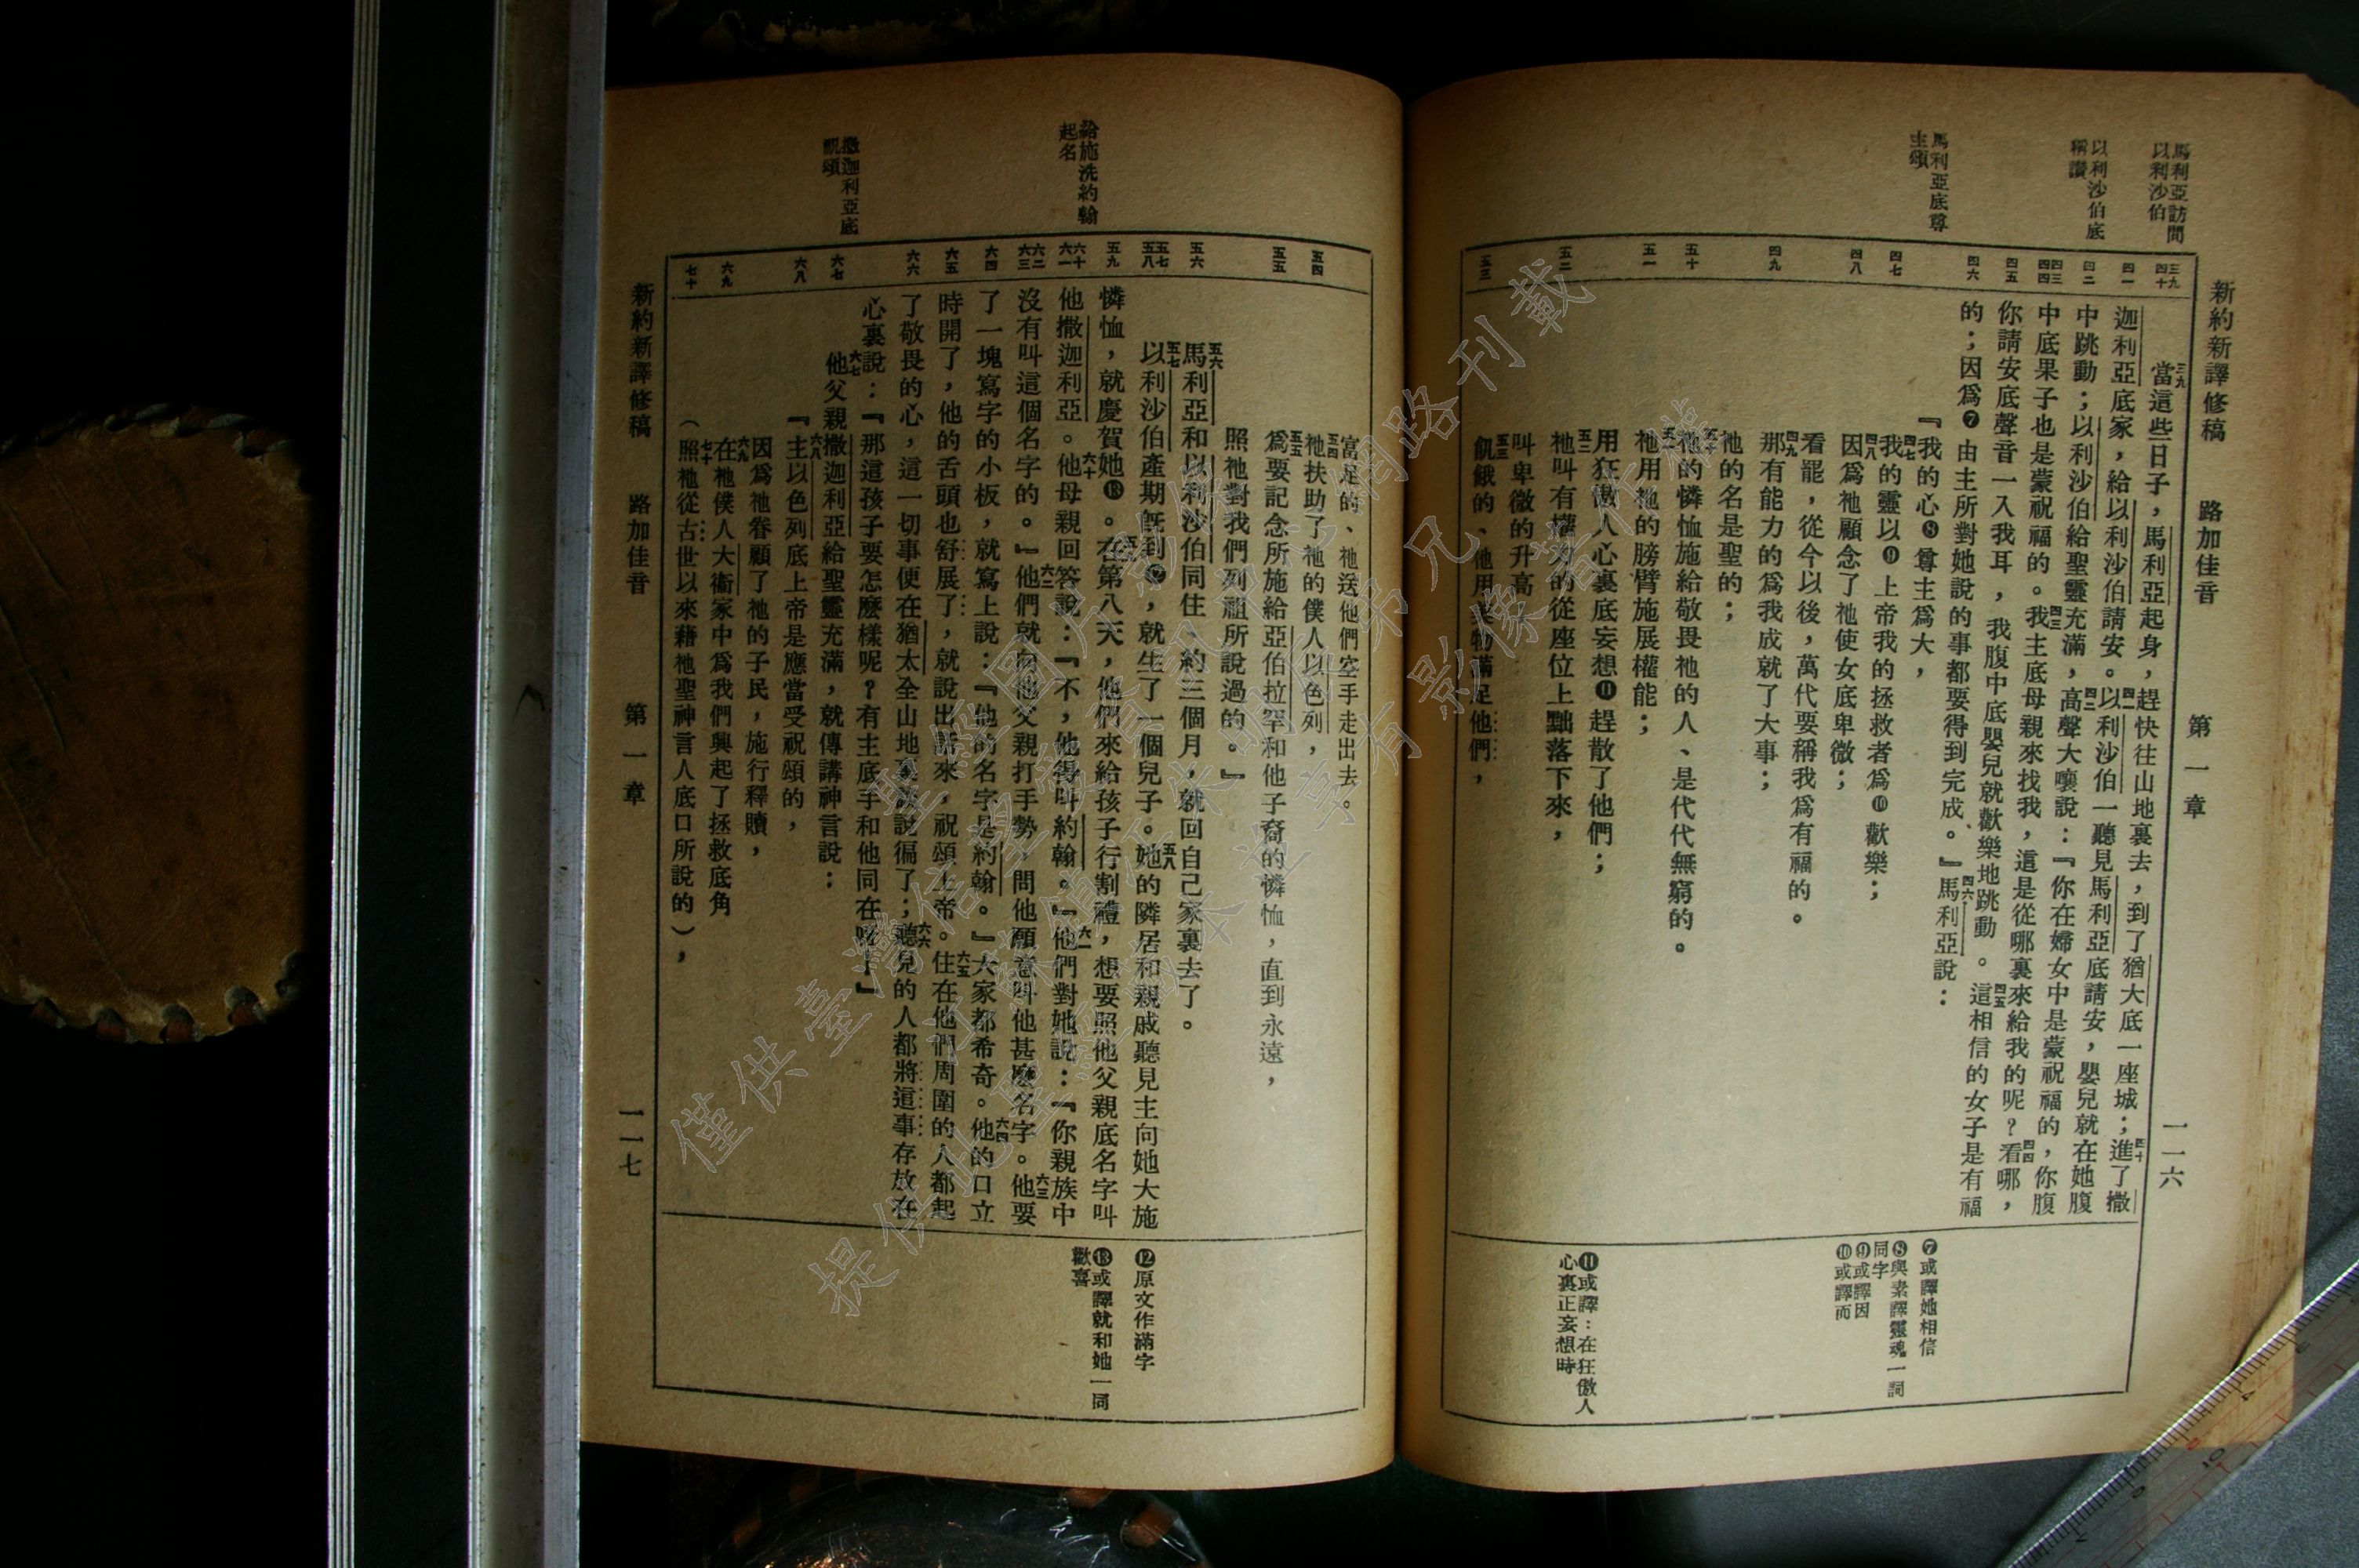 新約新譯修稿 路加佳音 第一章 一一六
馬利亞訪問
以利沙伯
以利沙伯底
稱讚
馬利亞底尊
主頌
三九
四十
四一
四二
四三
四四
四五
四六
四七
四八
四九
五十
五一
五二
五三
三九當這些日子，馬利亞起身，趕快往山地裏去，到了猶大底一座城；四十進了撒
迦利亞底家，給以利沙伯請安。四一以利沙伯一聽見馬利亞底請安，嬰兒就在她腹
中跳動；以利沙伯給聖靈充滿，四二高聲大嚷說：『你在婦女中是蒙祝福的，你腹
中底果子也是蒙祝福的。四三我主底母親來找我，這是從哪裏來給我的呢？四四看哪，
你請安底聲音一入我耳，我腹中底嬰兒就歡樂地跳動。四五這相信的女子是有福
的；因爲❼由主所對她說的事都要得到完成。』四六馬利亞說：
『我的心❽尊主爲大，
四七我的靈以❾上帝我的拯救者爲❿歡樂；
四八因爲祂顧念了祂使女底卑微；
看罷，從今以後，萬代要稱我爲有福的。
四九那有能力的爲我成就了大事；
祂的名是聖的；
五十祂的憐恤施給敬畏祂的人、是代代無窮的。
五一祂用祂的膀臂施展權能；
用狂傲人心裏底妄想⓫趕散了他們；
五二祂叫有權力的從座位上黜落下來，
叫卑微的升高
五三飢餓的、他用美物滿足他們，
❼或譯她相信
❽與素譯靈魂一詞
同字
❾或譯因
❿或譯而
⓫或譯：在狂傲人
心裏正妄想時
給施洗約翰
起名
撒迦利亞底
凱頌
五四
五五
五六
五七
五八
五九
六十
六一
六二
六三
六四
六五
六六
六七
六八
六九
七十
富足的、祂送他們空手走出去。
五四祂扶助了祂的僕人以色列，
五五爲要記念所施給亞伯拉罕和他子裔的憐恤，直到永遠，
照祂對我們列祖所說過的。』
五六馬利亞和以利沙伯同住、約三個月，就回自己家裏去了。
五七以利沙伯產期旣到⓬，就生了一個兒子。五八她的隣居和親戚聽見主向她大施
憐恤，就慶賀她⓭。五九在第八天，他們來給孩子行割禮，想要照他父親底名字叫
他撒迦利亞。六十他母親回答說：『不，他得叫約翰。』六一他們對她說：『你親族中
沒有叫這個名字的。』六二他們就向他父親打手勢，問他願意叫他甚麼名字。六三他要
了一塊寫字的小板，就寫上說：『他的名字是約翰。』大家都希奇。六四他的口立
時開了，他的舌頭也舒展了，就說出話來，祝頌上帝。六五住在他們周圍的人都起
了敬畏的心，這一切事便在猶太全山地裏談說徧了；六六聽見的人都將這事存放在
心裏說：『那這孩子要怎麼樣呢？有主底手和他同在呀！』
六七他父親撒迦利亞給聖靈充滿，就傳講神言說：
六八『主以色列底上帝是應當受祝頌的，
因爲祂眷顧了祂的子民，施行釋贖，
六九在祂僕人大衞家中爲我們興起了拯救底角
七十（照祂從古世以來藉祂聖神言人底口所說的），
⓬原文作滿字
⓭或譯就和她一同
歡喜
新約新譯修稿 路加佳音 第一章 一一七